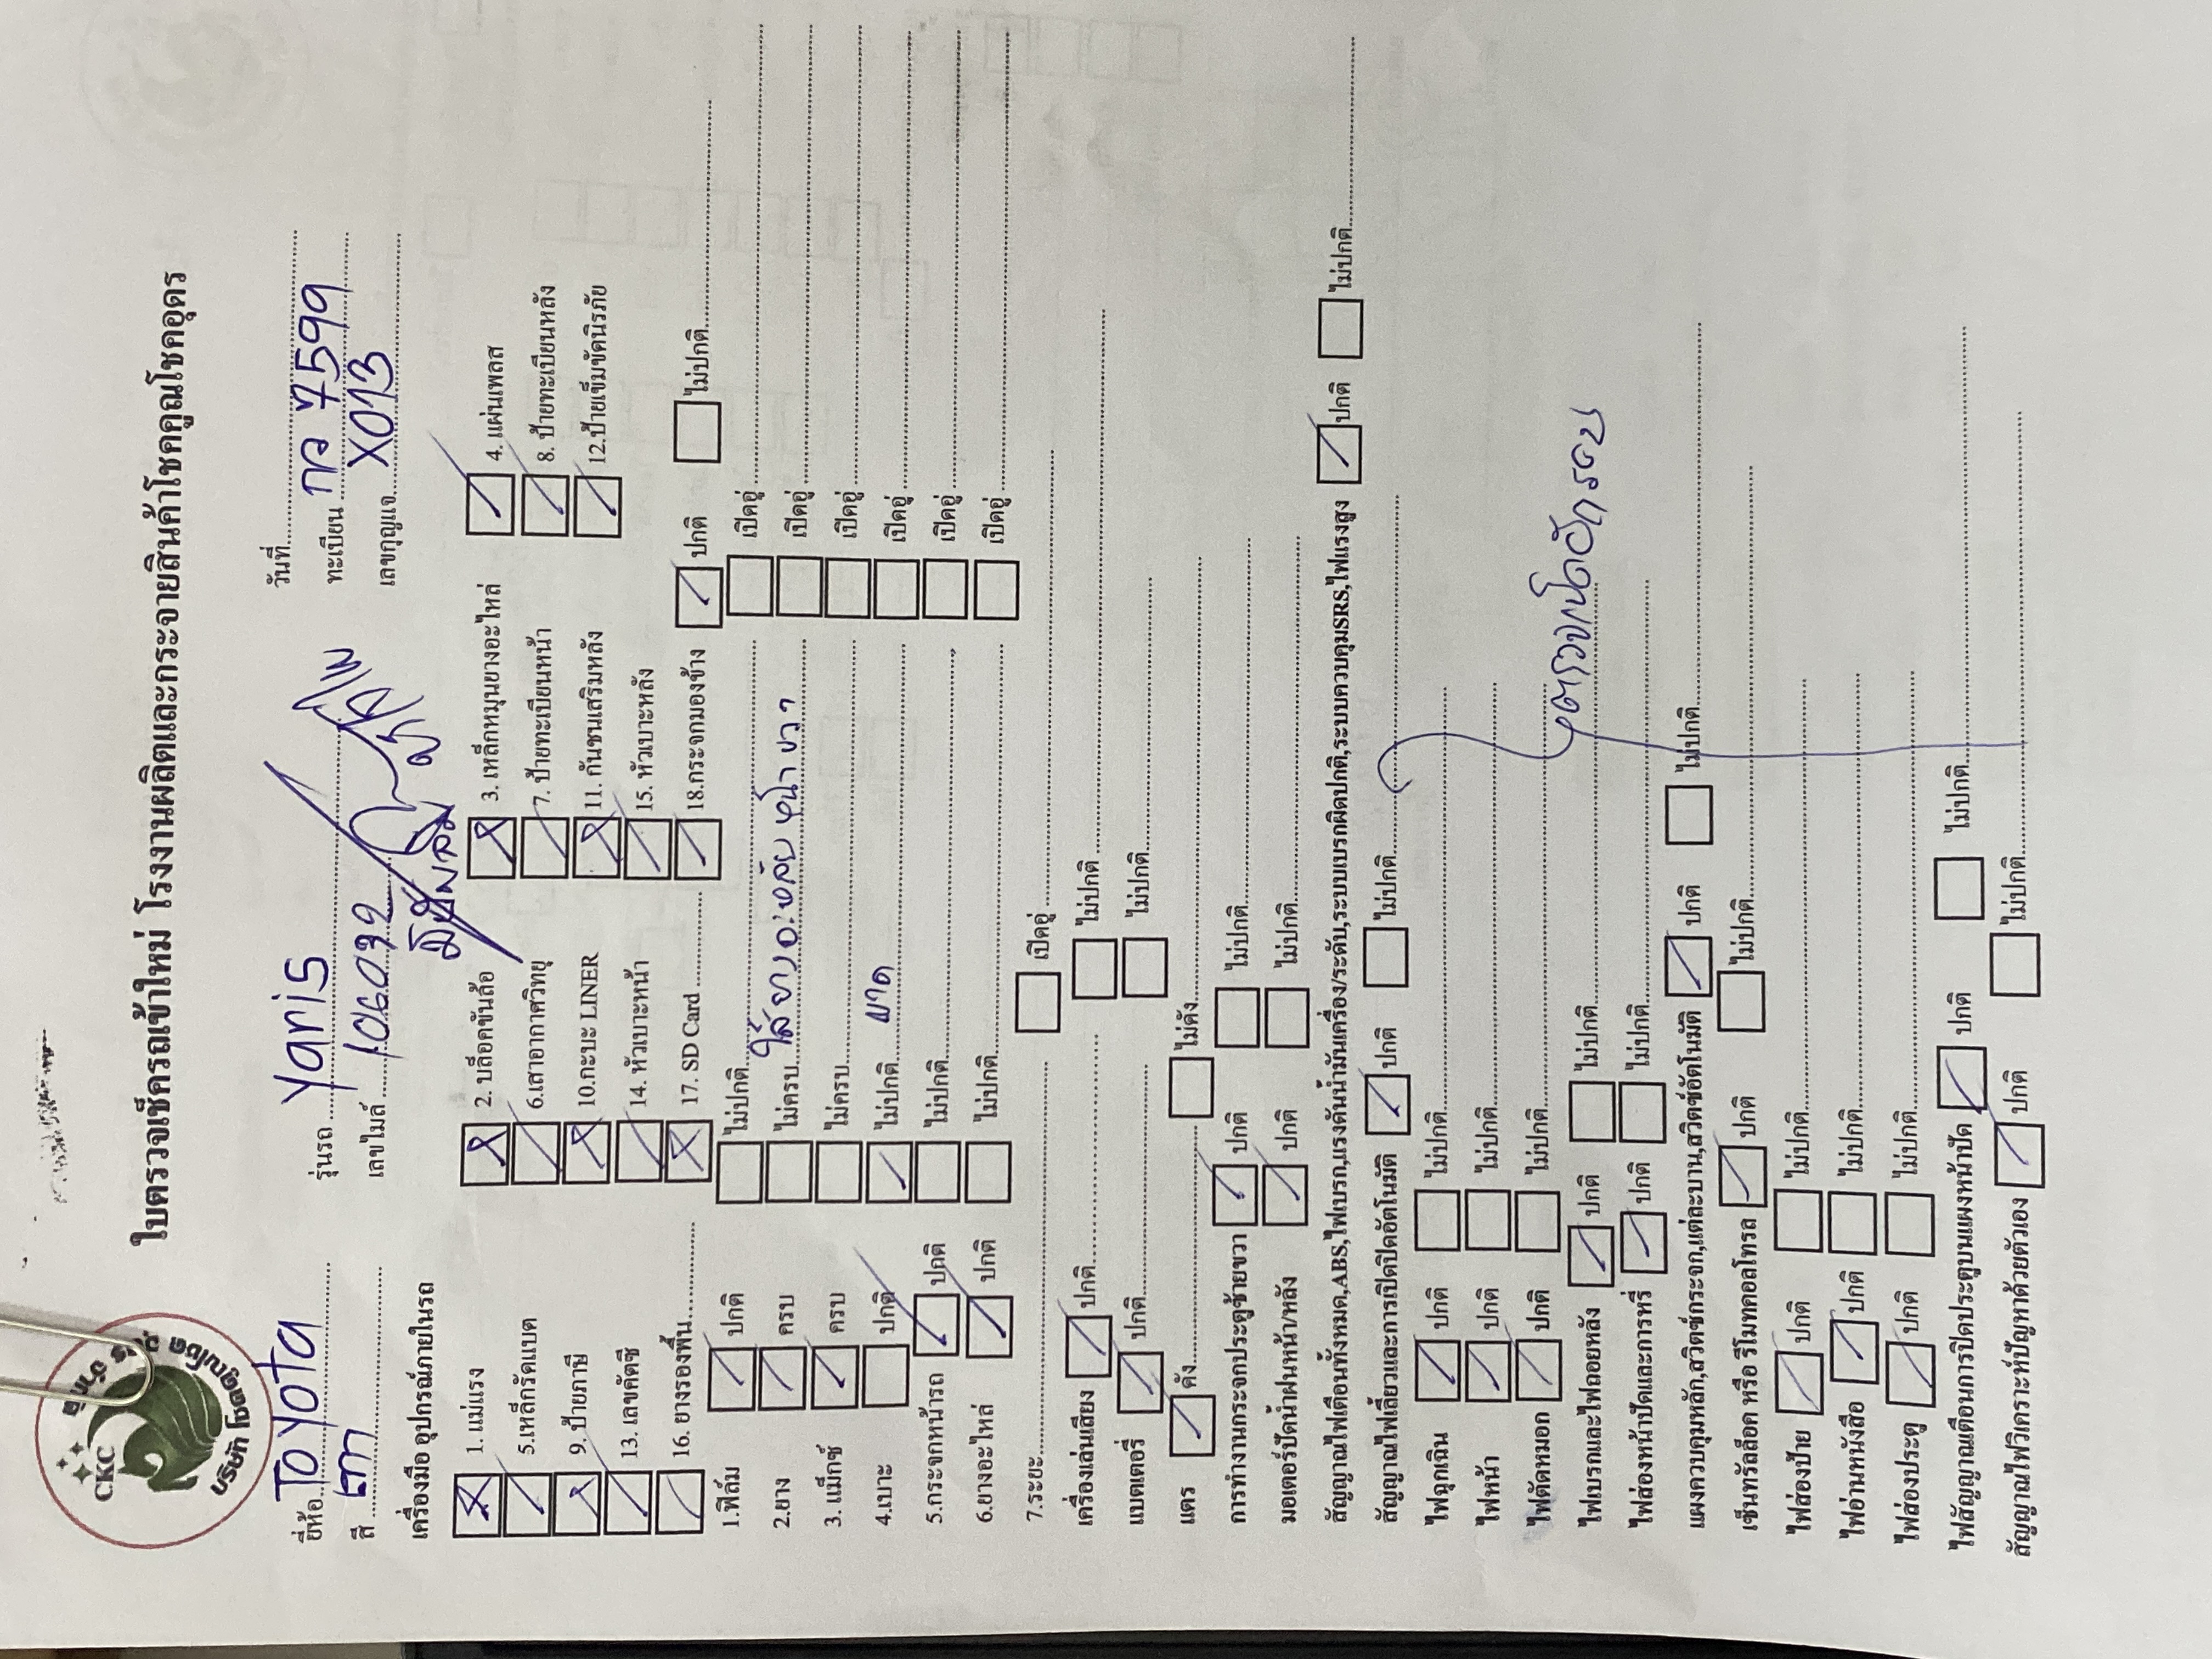 CKC
บริษัท โชคคูณโชค
ใบตรวจเช็ครถเข้าใหม่ โรงงานผลิตและกระจายสินค้าโชคคูณโชคอุดร
วันที่
ยี่ห้อ ToYota รุ่นรถ Yaris ทะเบียน กว 7599
สี เทา เลขไมล์ 106092 เลขกุญแจ X013
เครื่องมือ อุปกรณ์ภายในรถ
1. แม่แรง 2. บล็อคขันล้อ 3. เหล็กหมุนยางอะไหล่ 4. แผ่นเพลส
5.เหล็กรัดแบต 6.เสาอากาศวิทยุ 7. ป้ายทะเบียนหน้า 8. ป้ายทะเบียนหลัง
9. ป้ายภาษี 10.กะบะ LINER 11. กันชนเสริมหลัง 12.ป้ายเข็มขัดนิรภัย
13. เลขคัตซี 14. หัวเบาะหน้า 15. หัวเบาะหลัง
16. ยางรองพื้น 17. SD Card 18.กระจกมองข้าง ปกติ ไม่ปกติ
1.ฟิล์ม ปกติ ไม่ปกติ เปิดอู่
2.ยาง ครบ ไม่ครบ ใส่ยางอะหลัย หน้า ขวา เปิดอู่
3. แม็กซ์ ครบ ไม่ครบ เปิดอู่
4.เบาะ ปกติ ไม่ปกติ ขาด เปิดอู่
5.กระจกหน้ารถ ปกติ ไม่ปกติ เปิดอู่
6.ยางอะไหล่ ปกติ ไม่ปกติ เปิดอู่
7.ระยะ เปิดอู่
เครื่องเล่นเสียง ปกติ ไม่ปกติ
แบตเตอรี่ ปกติ ไม่ปกติ
แตร ดัง ไม่ดัง
การทำงานกระจกประตูซ้ายขวา ปกติ ไม่ปกติ
มอเตอร์ปัดน้ำฝนหน้า/หลัง ปกติ ไม่ปกติ
สัญญาณไฟเตือนทั้งหมด,ABS,ไฟเบรก,แรงดันน้ำมันเครื่อง/ระดับ,ระบบเบรกผิดปกติ,ระบบควบคุมSRS,ไฟแรงสูง ปกติ ไม่ปกติ
สัญญาณไฟเลี้ยวและการเปิดปิดอัตโนมัติ ปกติ ไม่ปกติ
ไฟฉุกเฉิน ปกติ ไม่ปกติ
ไฟหน้า ปกติ ไม่ปกติ
ไฟตัดหมอก ปกติ ไม่ปกติ
ไฟเบรกและไฟถอยหลัง ปกติ ไม่ปกติ
ไฟส่องหน้าปัดและการหรี่ ปกติ ไม่ปกติ
แผงควบคุมหลัก,สวิตซ์กระจก,แต่ละบาน,สวิตซ์อัตโนมัติ ปกติ ไม่ปกติ
เซ็นทรัลล็อค หรือ รีโมทคอลโทรล ปกติ ไม่ปกติ
ไฟส่องป้าย ปกติ ไม่ปกติ
ไฟอ่านหนังสือ ปกติ ไม่ปกติ
ไฟส่องประตู ปกติ ไม่ปกติ
ไฟสัญญาณเตือนการปิดประตูบนแผงหน้าปัด ปกติ ไม่ปกติ
สัญญาณไฟวิเคราะห์ปัญหาด้วยตัวเอง ปกติ ไม่ปกติ